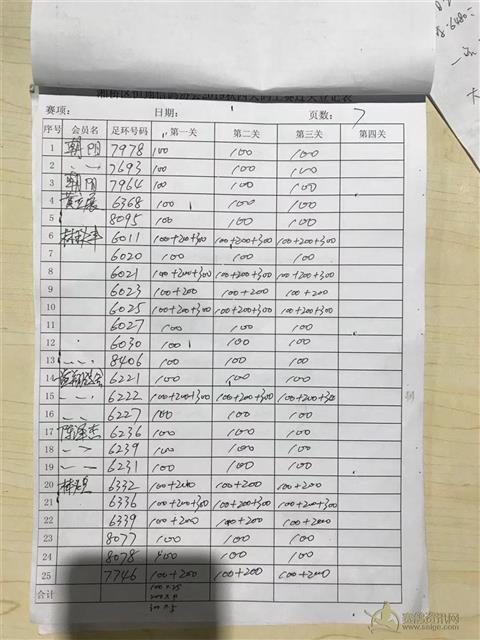 赛项: 日期: 页数: 7
序号 会员名 足环号码 第一关 第二关 第三关 第四关
1 朝阳 7978 100 100 100
2 〃 7693 100 100 100
3 朝阳 7964 100 100 100
4 6368 100 100 100
5 8095 100 100 100
6 6011 100+200+300 100+200+300 100+200+300
7 6020 100 100 100
8 6021 100+200+300 100+200+300 100+200+300
9 6023 100+200 100+200 100+200
10 6025 100+200+300 100+200+300 100+200+300
11 6027 100 100 100
12 6030 100 100 100
13 8406 100 100 100
14 6221 100 100 100
15 6222 100+200+300 100+200+300 100+200+300
16 6227 100 100 100
17 陈泽杰 6236 100 100 100
18 6239 100 100 100
19 6231 100 100 100
20 6332 100+200 100+200 100+200
21 6336 100+200+300 100+200+300 100+200+300
22 6339 100+200 100+200 100+200
23 8077 100 100 100
24 8078 100 100 100
25 7746 100+200 100+200 100+200
合计 100×25
赛鸽资讯网
www.saige.com